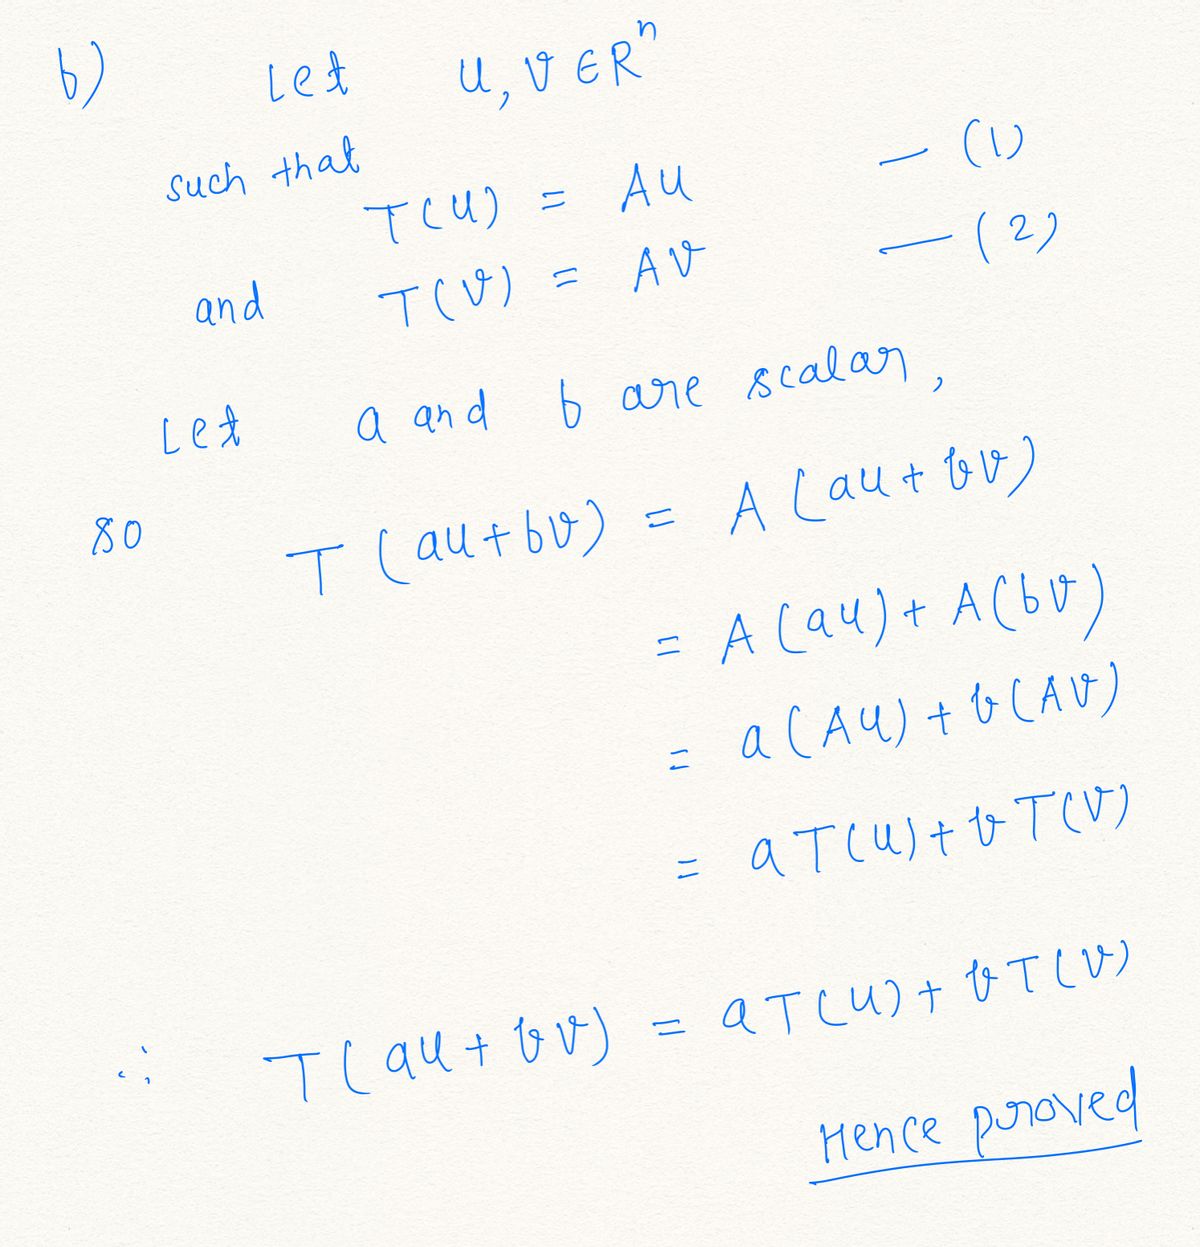 b) Let u, v ∈ Rⁿ
such that
T(u) = Au — (1)
and T(v) = Av — (2)
Let a and b are scalar,
so T(au+bv) = A(au+bv)
= A(au) + A(bv)
= a(Au) + b(Av)
= aT(u) + bT(v)
∴ T(au+bv) = aT(u) + bT(v)
Hence proved